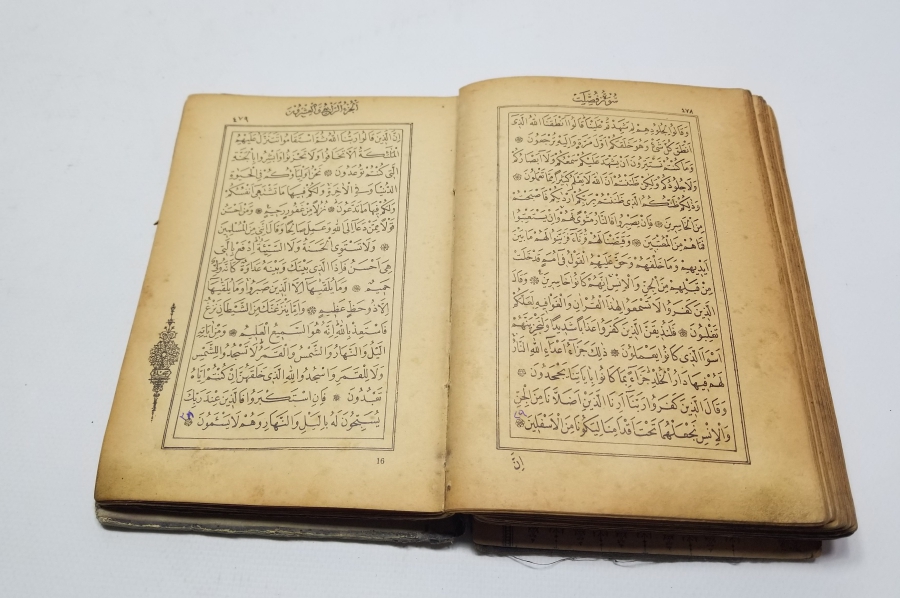 سُورَةُ فُصِّلَتْ ٤٧٨
وَقَالُوا لِجُلُودِهِمْ لِمَ شَهِدْتُمْ عَلَيْنَا قَالُوا اَنْطَقَنَا اللّٰهُ الَّذِى
اَنْطَقَ كُلَّ شَىْءٍ وَهُوَ خَلَقَكُمْ اَوَّلَ مَرَّةٍ وَاِلَيْهِ تُرْجَعُونَ
وَمَا كُنْتُمْ تَسْتَتِرُونَ اَنْ يَشْهَدَ عَلَيْكُمْ سَمْعُكُمْ وَلَا اَبْصَارُكُمْ
وَلَا جُلُودُكُمْ وَلٰكِنْ ظَنَنْتُمْ اَنَّ اللّٰهَ لَا يَعْلَمُ كَثِيرًا مِمَّا تَعْمَلُونَ
وَذٰلِكُمْ ظَنُّكُمُ الَّذِى ظَنَنْتُمْ بِرَبِّكُمْ اَرْدٰيكُمْ فَاَصْبَحْتُمْ
مِنَ الْخَاسِرِينَ فَاِنْ يَصْبِرُوا فَالنَّارُ مَثْوًى لَهُمْ وَاِنْ يَسْتَعْتِبُوا
فَمَا هُمْ مِنَ الْمُعْتَبِينَ وَقَيَّضْنَا لَهُمْ قُرَنَاءَ فَزَيَّنُوا لَهُمْ مَا بَيْنَ
اَيْدِيهِمْ وَمَا خَلْفَهُمْ وَحَقَّ عَلَيْهِمُ الْقَوْلُ فِى اُمَمٍ قَدْ خَلَتْ
مِنْ قَبْلِهِمْ مِنَ الْجِنِّ وَالْاِنْسِ اِنَّهُمْ كَانُوا خَاسِرِينَ وَقَالَ
الَّذِينَ كَفَرُوا لَا تَسْمَعُوا لِهٰذَا الْقُرْاٰنِ وَالْغَوْا فِيهِ لَعَلَّكُمْ
تَغْلِبُونَ فَلَنُذِيقَنَّ الَّذِينَ كَفَرُوا عَذَابًا شَدِيدًا وَلَنَجْزِيَنَّهُمْ
اَسْوَاَ الَّذِى كَانُوا يَعْمَلُونَ ذٰلِكَ جَزَاءُ اَعْدَاءِ اللّٰهِ النَّارُ
لَهُمْ فِيهَا دَارُ الْخُلْدِ جَزَاءً بِمَا كَانُوا بِاٰيَاتِنَا يَجْحَدُونَ
وَقَالَ الَّذِينَ كَفَرُوا رَبَّنَا اَرِنَا الَّذَيْنِ اَضَلَّانَا مِنَ الْجِنِّ
وَالْاِنْسِ نَجْعَلْهُمَا تَحْتَ اَقْدَامِنَا لِيَكُونَا مِنَ الْاَسْفَلِينَ
اِنَّ
اَلْجُزْءُ الرَّابِعُ وَالْعِشْرُونَ ٤٧٩
اِنَّ الَّذِينَ قَالُوا رَبُّنَا اللّٰهُ ثُمَّ اسْتَقَامُوا تَتَنَزَّلُ عَلَيْهِمُ
الْمَلٰئِكَةُ اَلَّا تَخَافُوا وَلَا تَحْزَنُوا وَاَبْشِرُوا بِالْجَنَّةِ
الَّتِى كُنْتُمْ تُوعَدُونَ نَحْنُ اَوْلِيَاؤُكُمْ فِى الْحَيٰوةِ
الدُّنْيَا وَفِى الْاٰخِرَةِ وَلَكُمْ فِيهَا مَا تَشْتَهِى اَنْفُسُكُمْ
وَلَكُمْ فِيهَا مَا تَدَّعُونَ نُزُلًا مِنْ غَفُورٍ رَحِيمٍ وَمَنْ اَحْسَنُ
قَوْلًا مِمَّنْ دَعَا اِلَى اللّٰهِ وَعَمِلَ صَالِحًا وَقَالَ اِنَّنِى مِنَ الْمُسْلِمِينَ
وَلَا تَسْتَوِى الْحَسَنَةُ وَلَا السَّيِّئَةُ اِدْفَعْ بِالَّتِى
هِىَ اَحْسَنُ فَاِذَا الَّذِى بَيْنَكَ وَبَيْنَهُ عَدَاوَةٌ كَاَنَّهُ وَلِىٌّ
حَمِيمٌ وَمَا يُلَقّٰيهَا اِلَّا الَّذِينَ صَبَرُوا وَمَا يُلَقّٰيهَا
اِلَّا ذُو حَظٍّ عَظِيمٍ وَاِمَّا يَنْزَغَنَّكَ مِنَ الشَّيْطَانِ نَزْغٌ
فَاسْتَعِذْ بِاللّٰهِ اِنَّهُ هُوَ السَّمِيعُ الْعَلِيمُ وَمِنْ اٰيَاتِهِ
الَّيْلُ وَالنَّهَارُ وَالشَّمْسُ وَالْقَمَرُ لَا تَسْجُدُوا لِلشَّمْسِ
وَلَا لِلْقَمَرِ وَاسْجُدُوا لِلّٰهِ الَّذِى خَلَقَهُنَّ اِنْ كُنْتُمْ اِيَّاهُ
تَعْبُدُونَ فَاِنِ اسْتَكْبَرُوا فَالَّذِينَ عِنْدَ رَبِّكَ
يُسَبِّحُونَ لَهُ بِالَّيْلِ وَالنَّهَارِ وَهُمْ لَا يَسْئَمُونَ
16